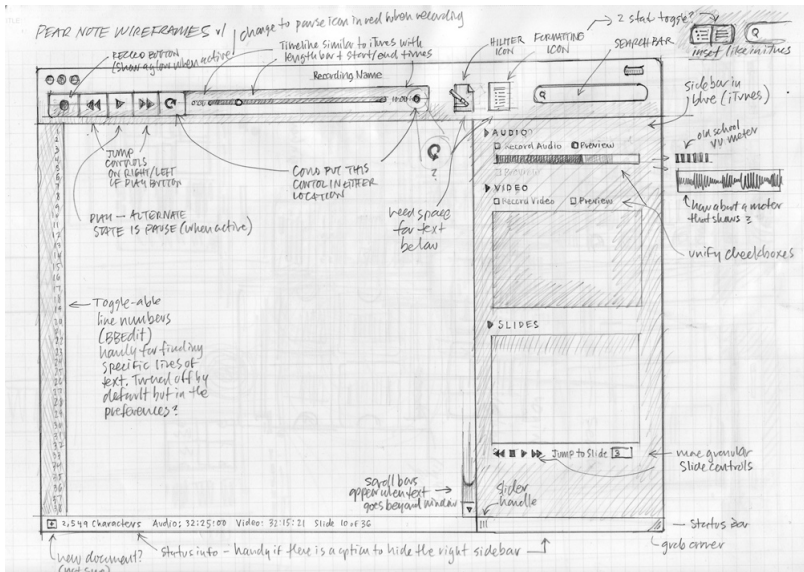 PEAR NOTE WIREFRAMES v1
change to pause icon in red when recording
2 state toggle?
RECORD BUTTON
(show a glow when active)
Timeline similar to iTunes with
length bar + start/end times
HILITER
ICON
FORMATTING
ICON
SEARCH BAR
inset like in iTunes
Recording Name
0:00
10:00
sidebar in
blue (iTunes)
JUMP
CONTROLS
ON RIGHT/LEFT
OF PLAY BUTTON
COULD PUT THIS
CONTROL IN EITHER
LOCATION
?
need space
for text
below
PLAY — ALTERNATE
STATE IS PAUSE (when active)
AUDIO
Record Audio
Preview
old school
VU meter
how about a meter
that shows?
VIDEO
Record Video
Preview
unify checkboxes
Toggle-able
line numbers
(BBEdit)
handy for finding
specific lines of
text. Turned off by
default but in the
preferences?
SLIDES
Jump to Slide 3
more granular
slide controls
scroll bars
appear when text
goes beyond window
slider
handle
2,549 Characters Audio: 32:25:00 Video: 32:15:21 Slide 10 of 36
status bar
grab corner
new document?
(not sure)
Status info – handy if there is a option to hide the right sidebar